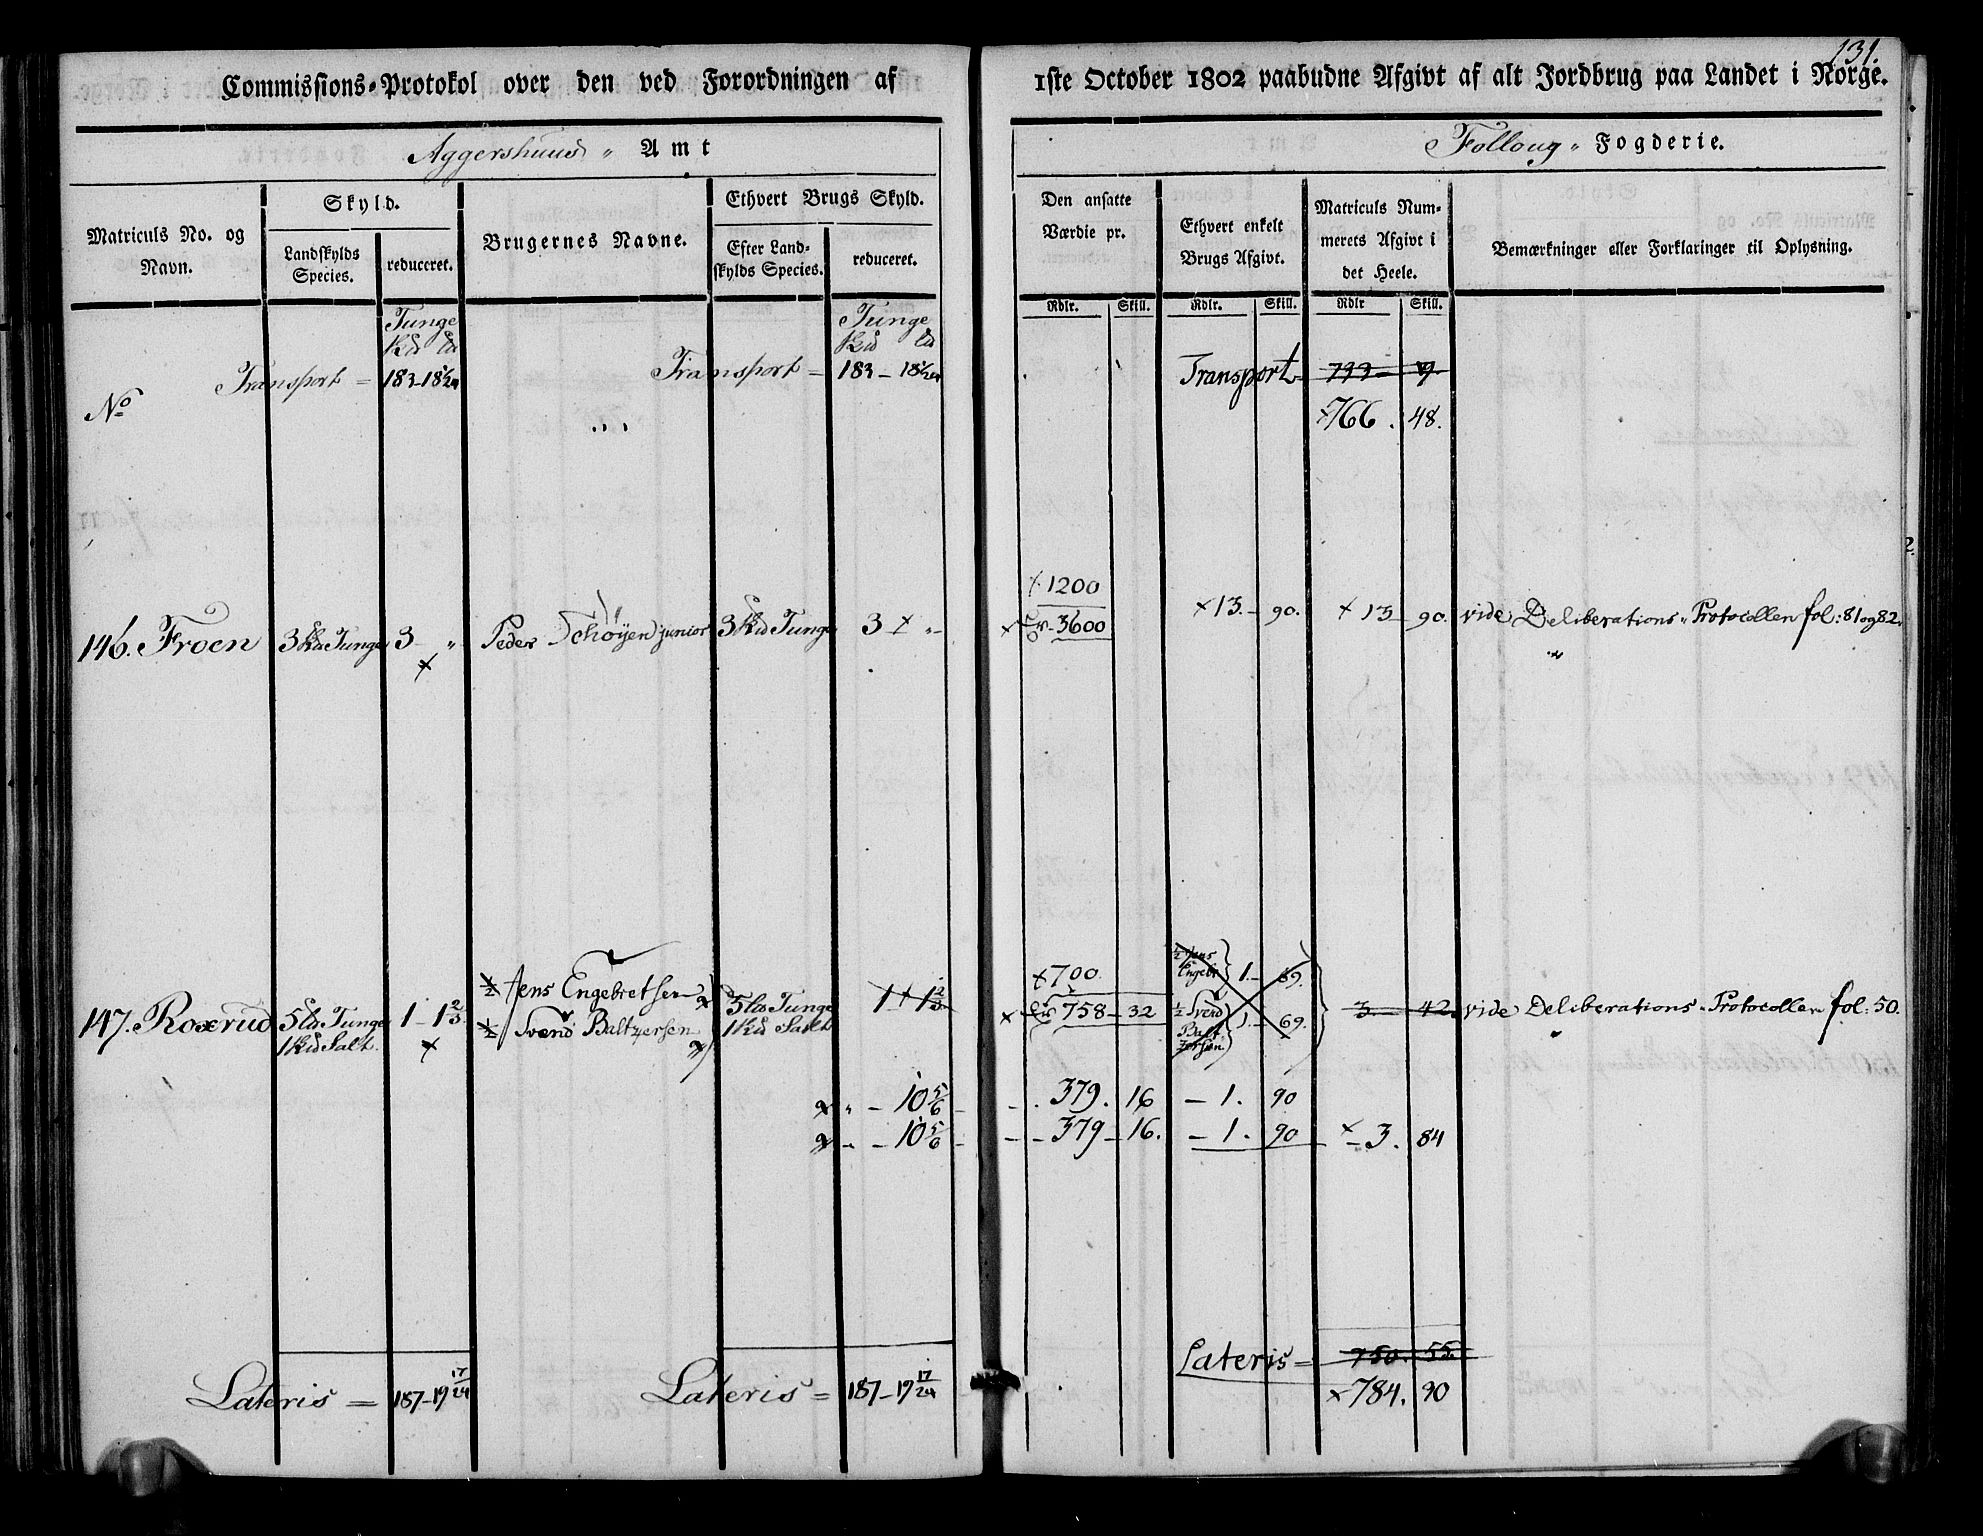 131.
Commissions-Protokol over den ved Forordningen af 1ste October 1802 paabudne Afgivt af alt Jordbrug paa Landet i Norge.
Aggershuus Amt Follong Fogderie.
Matriculs No. og Navn.
Skyld.
Landskylds Species.
reduceret.
Brugernes Navne.
Ethvert Brugs Skyld.
Efter Landskylds Species.
reduceret.
Den ansatte Værdie pr.
Ethvert enkelt Brugs Afgivt.
Matriculs Nummerets Afgivt i det Heele.
Bemærkninger eller Forklaringer til Oplysning.
Rdlr. Skill. Rdlr. Skill. Rdlr Skill.
Tunge Tunge
Transport = 183 - 18 1/24 Transport = 183 - 18 1/24 Transport 733 - 9
No 766. 48.
1200
146. Froen 3 Tunge 3 - „ Peder Schöyen junior 3 Tunge 3 „ 3600 13 - 90. 13 - 90. vide Deliberations Protocollen fol: 81 og 82.
700.
147. Roxrud 5 Tunge 1 - 1 2/3 1/2 Jens Engebretsen 5 Tunge 1 - 1 2/3 758 - 32 1/2 Jens Engebr 1 - 69. 3 - 42 vide Deliberations Protocollen fol: 50.
1 Salt. 1/2 Svend Baltzersen 1 Salt 1/2 Svend Baltzersen 1 - 69.
„ - 10 5/6 - 379. 16 - 1. 90
- 10 5/6 - 379 - 16. - 1. 90 - 3. 84
Lateris = 187 - 19 17/24 Lateris = 187 - 19 17/24 Lateris = 750. 55
784. 90